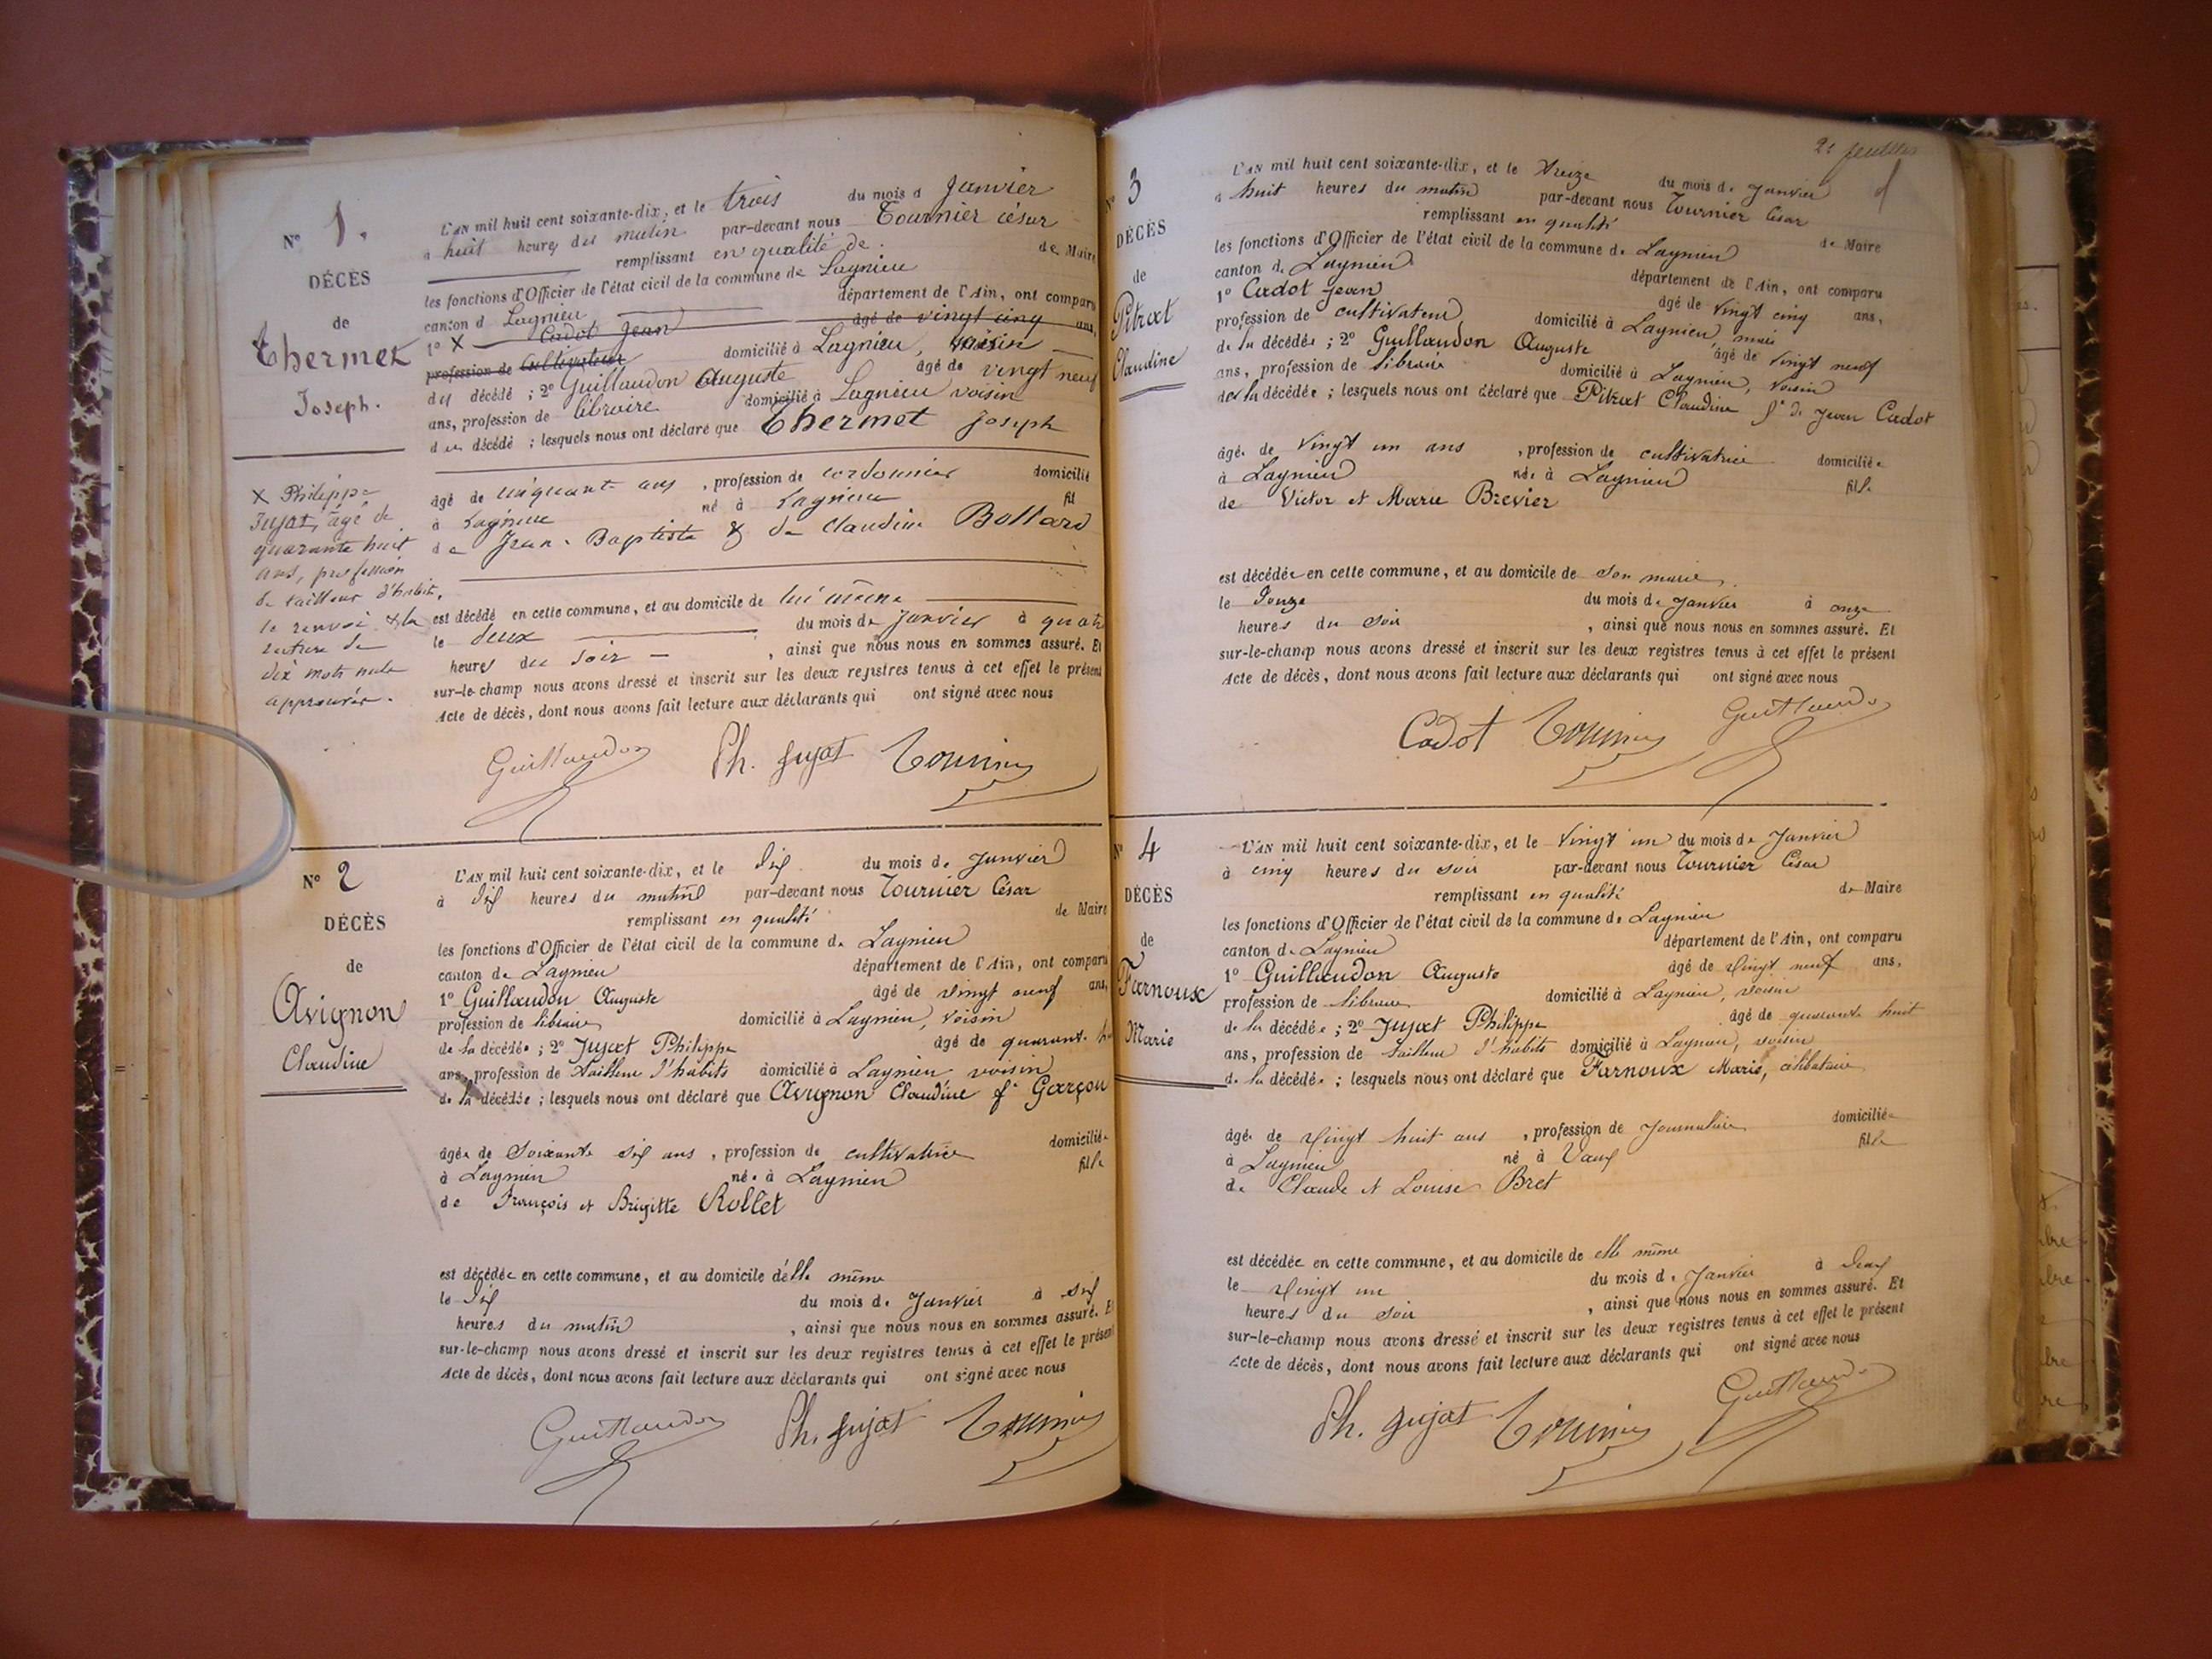 N° 1.
DÉCÈS
de
Thermet
Joseph.
L'AN mil huit cent soixante-dix, et le trois du mois d Janvier
à huit heures du matin par-devant nous Tournier César
remplissant en qualité de de Maire
les fonctions d'Officier de l'état civil de la commune de Lagnieu
canton d Lagnieu département de l'Ain, ont comparu
1° X Cadot Jean âgé de vingt cinq ans,
profession de cultivateur domicilié à Lagnieu, voisin
du décédé ; 2° Guillaudon Auguste âgé de vingt neuf
ans, profession de libraire domicilié à Lagnieu voisin
du décédé ; lesquels nous ont déclaré que Thermet Joseph
âgé de cinquante ans , profession de cordonnier domicilié
à Lagnieu né à Lagnieu fil
de Jean-Baptiste & de Claudine Bollard
X Philippe
Jujat, âgé de
quarante huit
ans, profession
de tailleur d'habits,
le renvoi & la
rature de
dix mots nuls
approuvés.
est décédé en cette commune, et au domicile de lui même
le deux du mois de Janvier à quatre
heures du soir , ainsi que nous nous en sommes assuré. Et
sur-le-champ nous avons dressé et inscrit sur les deux registres tenus à cet effet le présent
Acte de décès, dont nous avons fait lecture aux déclarants qui ont signé avec nous
Guillaudon Ph. Jujat Tournier
N° 2
DÉCÈS
de
Avignon
Claudine
L'AN mil huit cent soixante-dix, et le dix du mois de Janvier
à dix heures du matin par-devant nous Tournier César
remplissant en qualité de Maire
les fonctions d'Officier de l'état civil de la commune de Lagnieu
canton de Lagnieu département de l'Ain, ont comparu
1° Guillaudon Auguste âgé de vingt neuf ans,
profession de libraire domicilié à Lagnieu, voisin
de la décédée ; 2° Jujat Philippe âgé de quarante
ans, profession de tailleur d'habits domicilié à Lagnieu voisin
de la décédée ; lesquels nous ont déclaré que Avignon Claudine fe Garçon
âgée de soixante six ans , profession de cultivatrice domiciliée
à Lagnieu née à Lagnieu fille
de François et Brigitte Rollet
est décédée en cette commune, et au domicile d'elle même
le dix du mois de Janvier à six
heures du matin , ainsi que nous nous en sommes assuré. Et
sur-le-champ nous avons dressé et inscrit sur les deux registres tenus à cet effet le présent
Acte de décès, dont nous avons fait lecture aux déclarants qui ont signé avec nous
Guillaudon Ph. Jujat Tournier
21 feuillets
N° 3
DÉCÈS
de
Pitrat
Claudine
L'AN mil huit cent soixante-dix, et le treize du mois de Janvier
à huit heures du matin par-devant nous Tournier César
remplissant en qualité de Maire
les fonctions d'Officier de l'état civil de la commune de Lagnieu
canton de Lagnieu département de l'Ain, ont comparu
1° Cadot Jean âgé de vingt cinq ans,
profession de cultivateur domicilié à Lagnieu, mari
de la décédée ; 2° Guillaudon Auguste âgé de vingt neuf
ans, profession de libraire domicilié à Lagnieu, voisin
de la décédée ; lesquels nous ont déclaré que Pitrat Claudine fe de Jean Cadot
âgée de vingt un ans , profession de cultivatrice domiciliée
à Lagnieu née à Lagnieu fille
de Victor et Marie Brevier
est décédée en cette commune, et au domicile de son marie
le douze du mois de Janvier à onze
heures du soir , ainsi que nous nous en sommes assuré. Et
sur-le-champ nous avons dressé et inscrit sur les deux registres tenus à cet effet le présent
Acte de décès, dont nous avons fait lecture aux déclarants qui ont signé avec nous
Cadot Tournier Guillaudon
N° 4
DÉCÈS
de
Farnoux
Marie
L'AN mil huit cent soixante-dix, et le vingt un du mois de Janvier
à cinq heures du soir par-devant nous Tournier César
remplissant en qualité de Maire
les fonctions d'Officier de l'état civil de la commune de Lagnieu
canton de Lagnieu département de l'Ain, ont comparu
1° Guillaudon Auguste âgé de vingt neuf ans,
profession de libraire domicilié à Lagnieu, voisin
de la décédée ; 2° Jujat Philippe âgé de quarante huit
ans, profession de tailleur d'habits domicilié à Lagnieu, voisin
de la décédée ; lesquels nous ont déclaré que Farnoux Marie, célibataire
âgée de vingt huit ans , profession de journalière domiciliée
à Lagnieu né à Vaux fille
de Claude et Louise Bret
est décédée en cette commune, et au domicile de elle même
le vingt un du mois de Janvier à deux
heures du soir , ainsi que nous nous en sommes assuré. Et
sur-le-champ nous avons dressé et inscrit sur les deux registres tenus à cet effet le présent
Acte de décès, dont nous avons fait lecture aux déclarants qui ont signé avec nous
Ph. Jujat Tournier Guillaudon